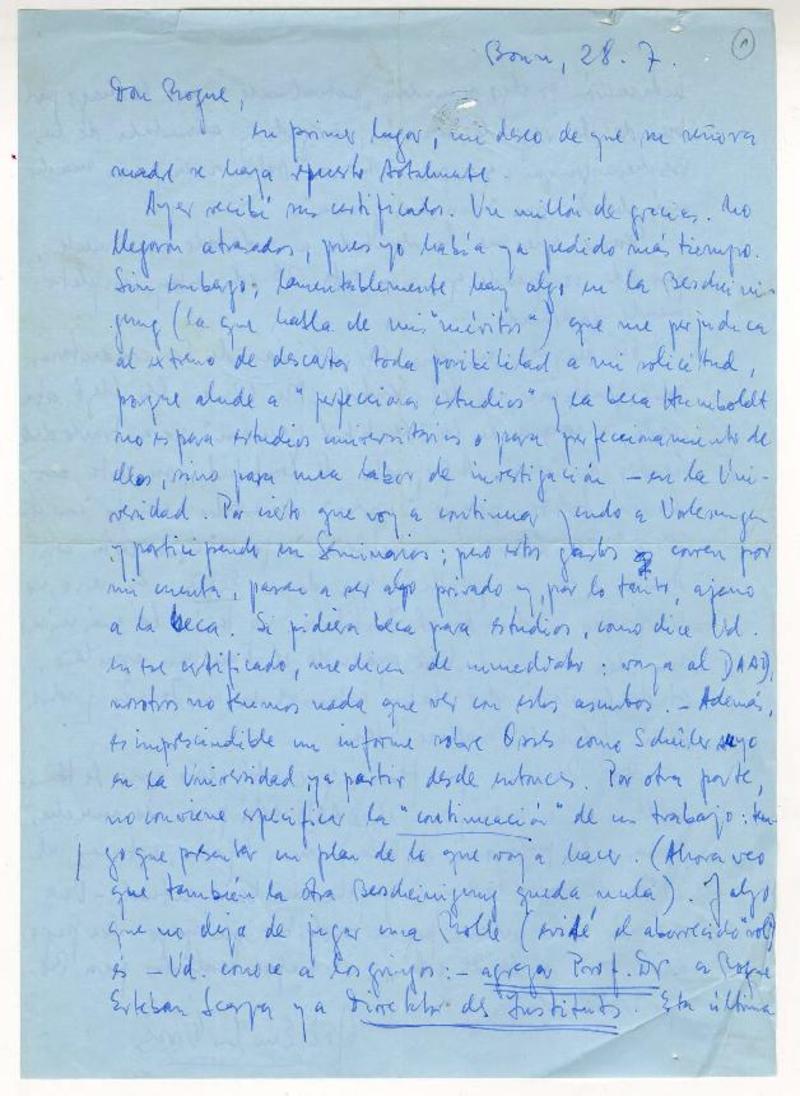 1
Bonn, 28. 7.
Don Roque,
en primer lugar, mi deseo de que su señora
madre se haya repuesto totalmente.
Ayer recibí sus certificados. Un millón de gracias. No
llegaron atrasados, pues yo había ya pedido más tiempo.
Sin embargo, lamentablemente hay algo en la Bescheini-
gung (la que habla de mis "méritos") que me perjudica
al extremo de descartar toda posibilidad a mi solicitud,
porque alude a "perfeccionar estudios" y la beca Humboldt
no es para estudios universitarios o para perfeccionamiento de
ellos, sino para una labor de investigación – en la Uni-
versidad. Por cierto que voy a continuar yendo a Vorlesungen
y participando en Seminarios; pero estos gastos corren por
mi cuenta, pasan a ser algo privado y, por lo tanto, ajeno
a la beca. Si pidiera beca para estudios, como dice Ud.
en ese certificado, me dicen de inmediato: vaya al DAAD,
nosotros no tenemos nada que ver con estos asuntos. – Además,
es imprescindible un informe sobre Osses como Schüler suyo
en la Universidad, y a partir desde entonces. Por otra parte,
no conviene especificar la "continuación" de un trabajo: ten-
go que presentar un plan de lo que voy a hacer. (Ahora veo
que también la otra Bescheinigung queda nula). Y algo
que no deja de jugar una Rolle (evité el aborrecido rol)
es – Ud. conoce a los gringos: – agregar Prof. Dr. a Roque
Esteban Scarpa y a Direktor des Instituts. Esta última